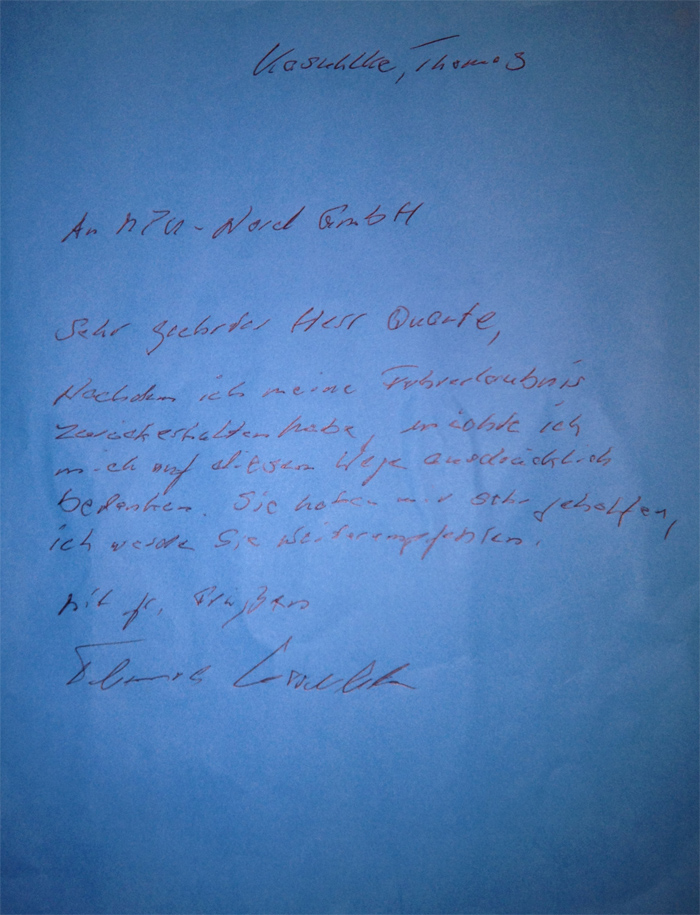 Kaschlke, Thomas
An MPU-Nord GmbH
Sehr geehrter Herr Quante,
Nachdem ich meine Fahrerlaubnis
zurückerhalten habe möchte ich
mich auf diesem Wege ausdrücklich
bedanken. Sie haben mir sehr geholfen,
ich werde Sie weiterempfehlen.
Mit fr. Grüßen
Thomas